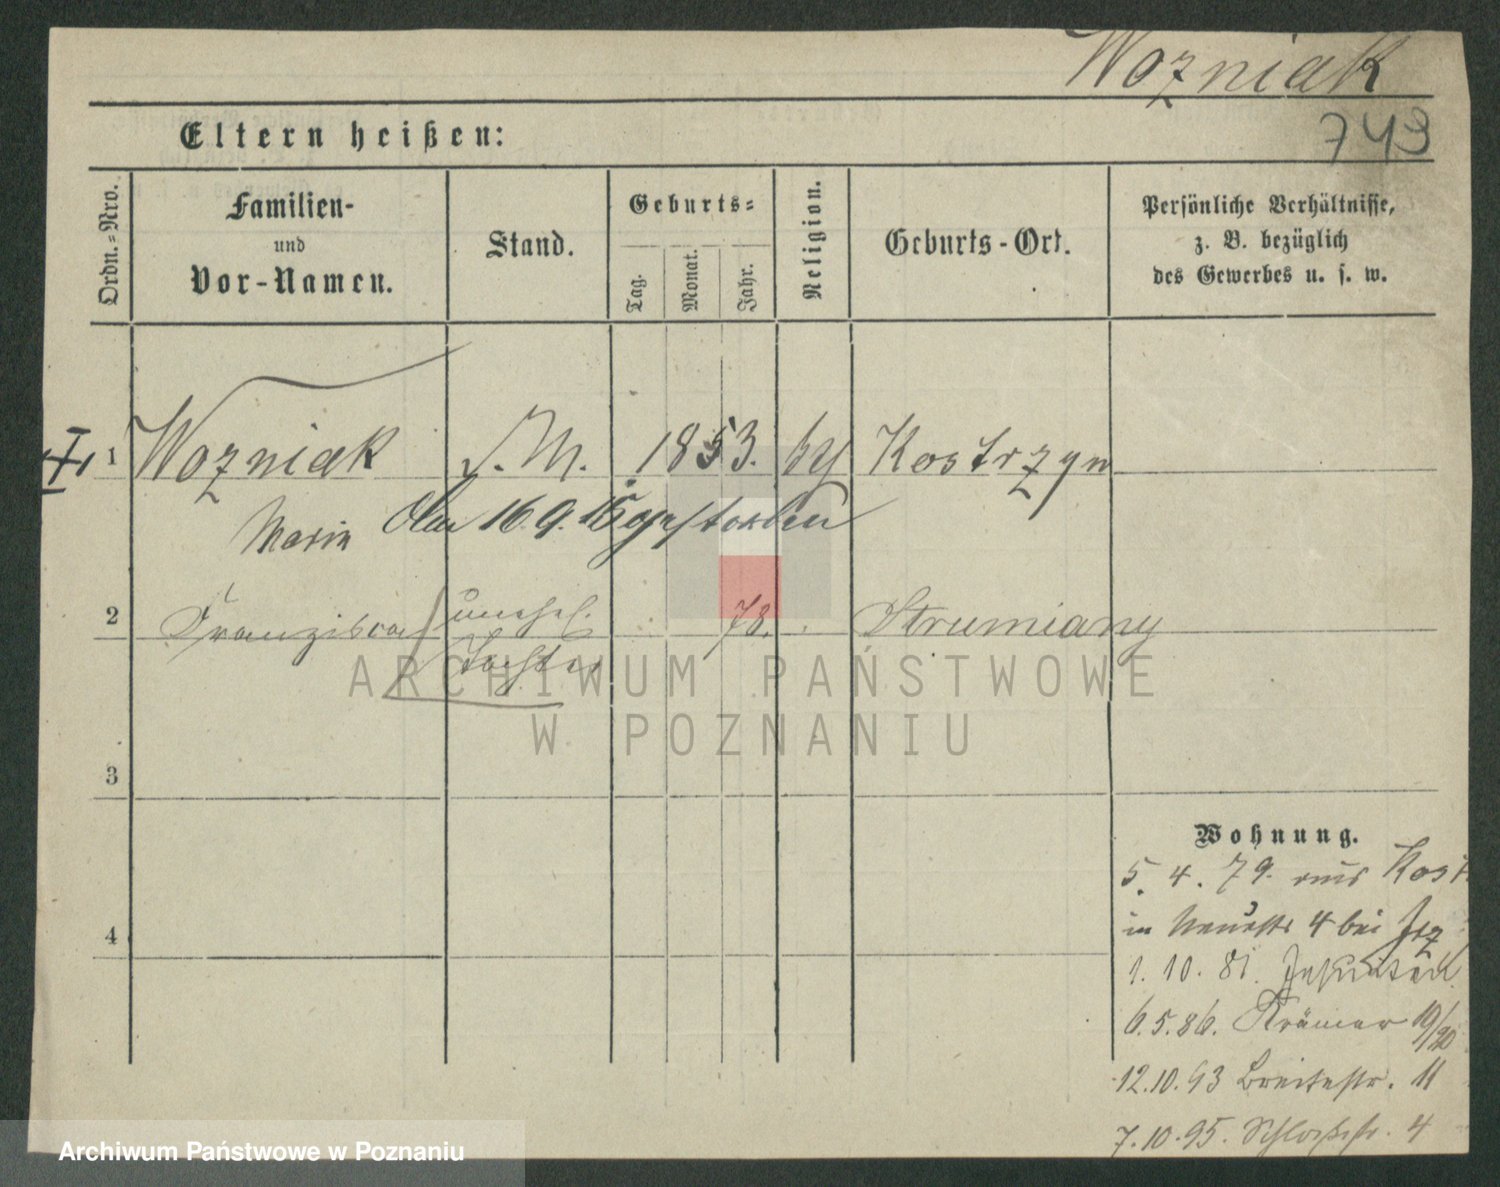 Wozniak
743
Eltern heißen:
Ordn.=Nro.
Familien-
und
Vor-Namen.
Stand.
Geburts=
Tag.
Monat.
Jahr.
Religion.
Geburts-Ort.
Persönliche Verhältnisse,
z. B. bezüglich
des Gewerbes u. s. w.
1 Wozniak 1853. Kostrzyn
Maria
16 9. 15 gestorben
2 Franziska unehel. 78. Strumiany
Tochter
ARCHIWUM PAŃSTWOWE
W POZNANIU
3
Wohnung.
5. 4. 79. aus Kost
4
in 4 bei
1. 10. 81.
6. 5. 86. Krämer 19/20
12.10.93 Breitestr. 11
7.10.95. Schloßstr. 4
Archiwum Państwowe w Poznaniu